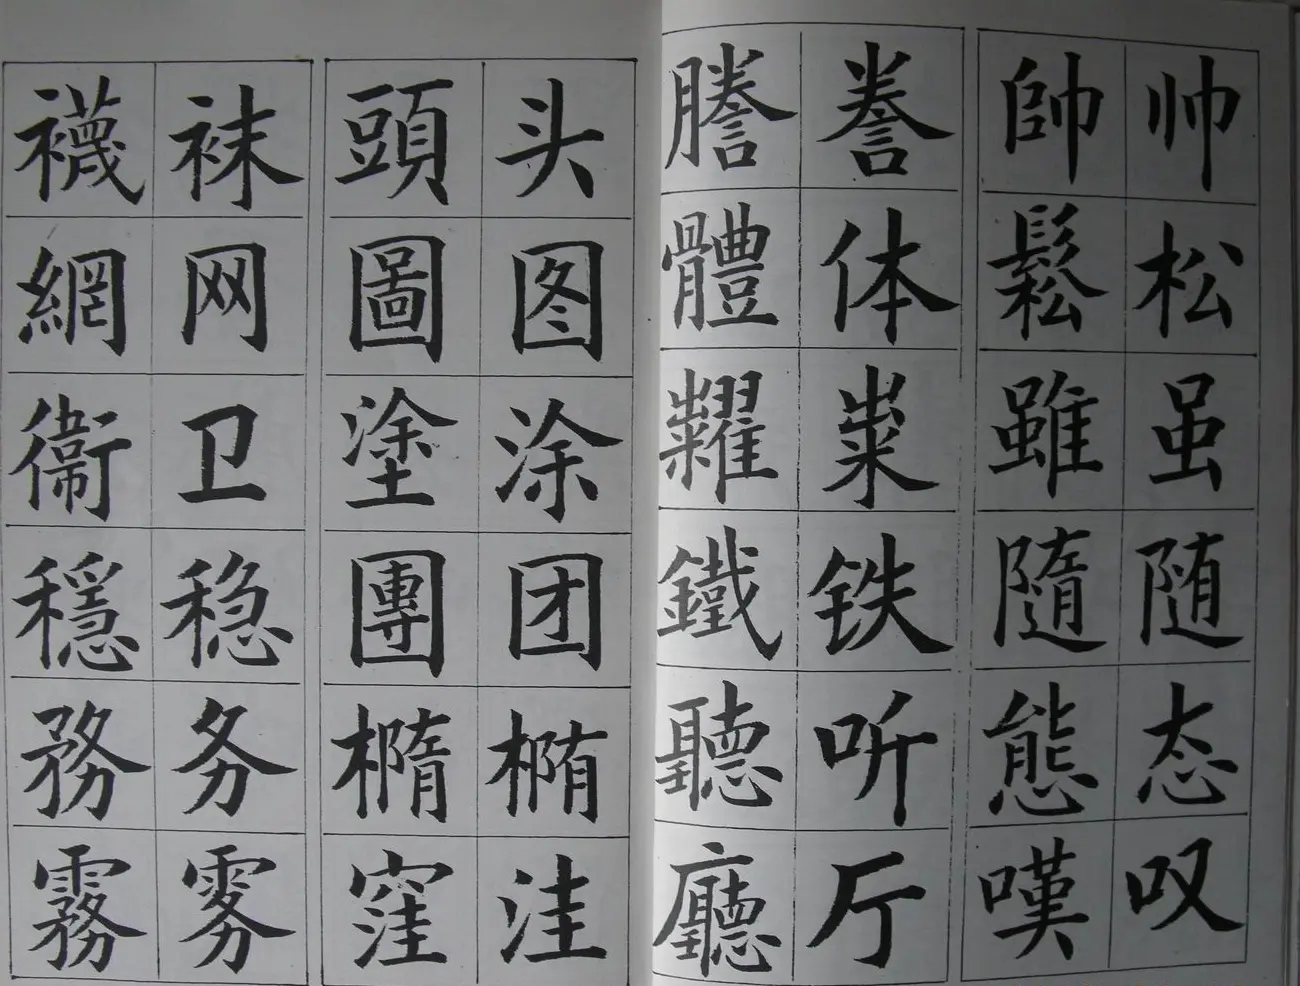 帅松虽随态叹
帥鬆雖隨態嘆
誊体粜铁听厅
謄體糶鐵聽廳
头图涂团椭洼
頭圖塗團橢窪
袜网卫稳务雾
襪網衛穩務霧